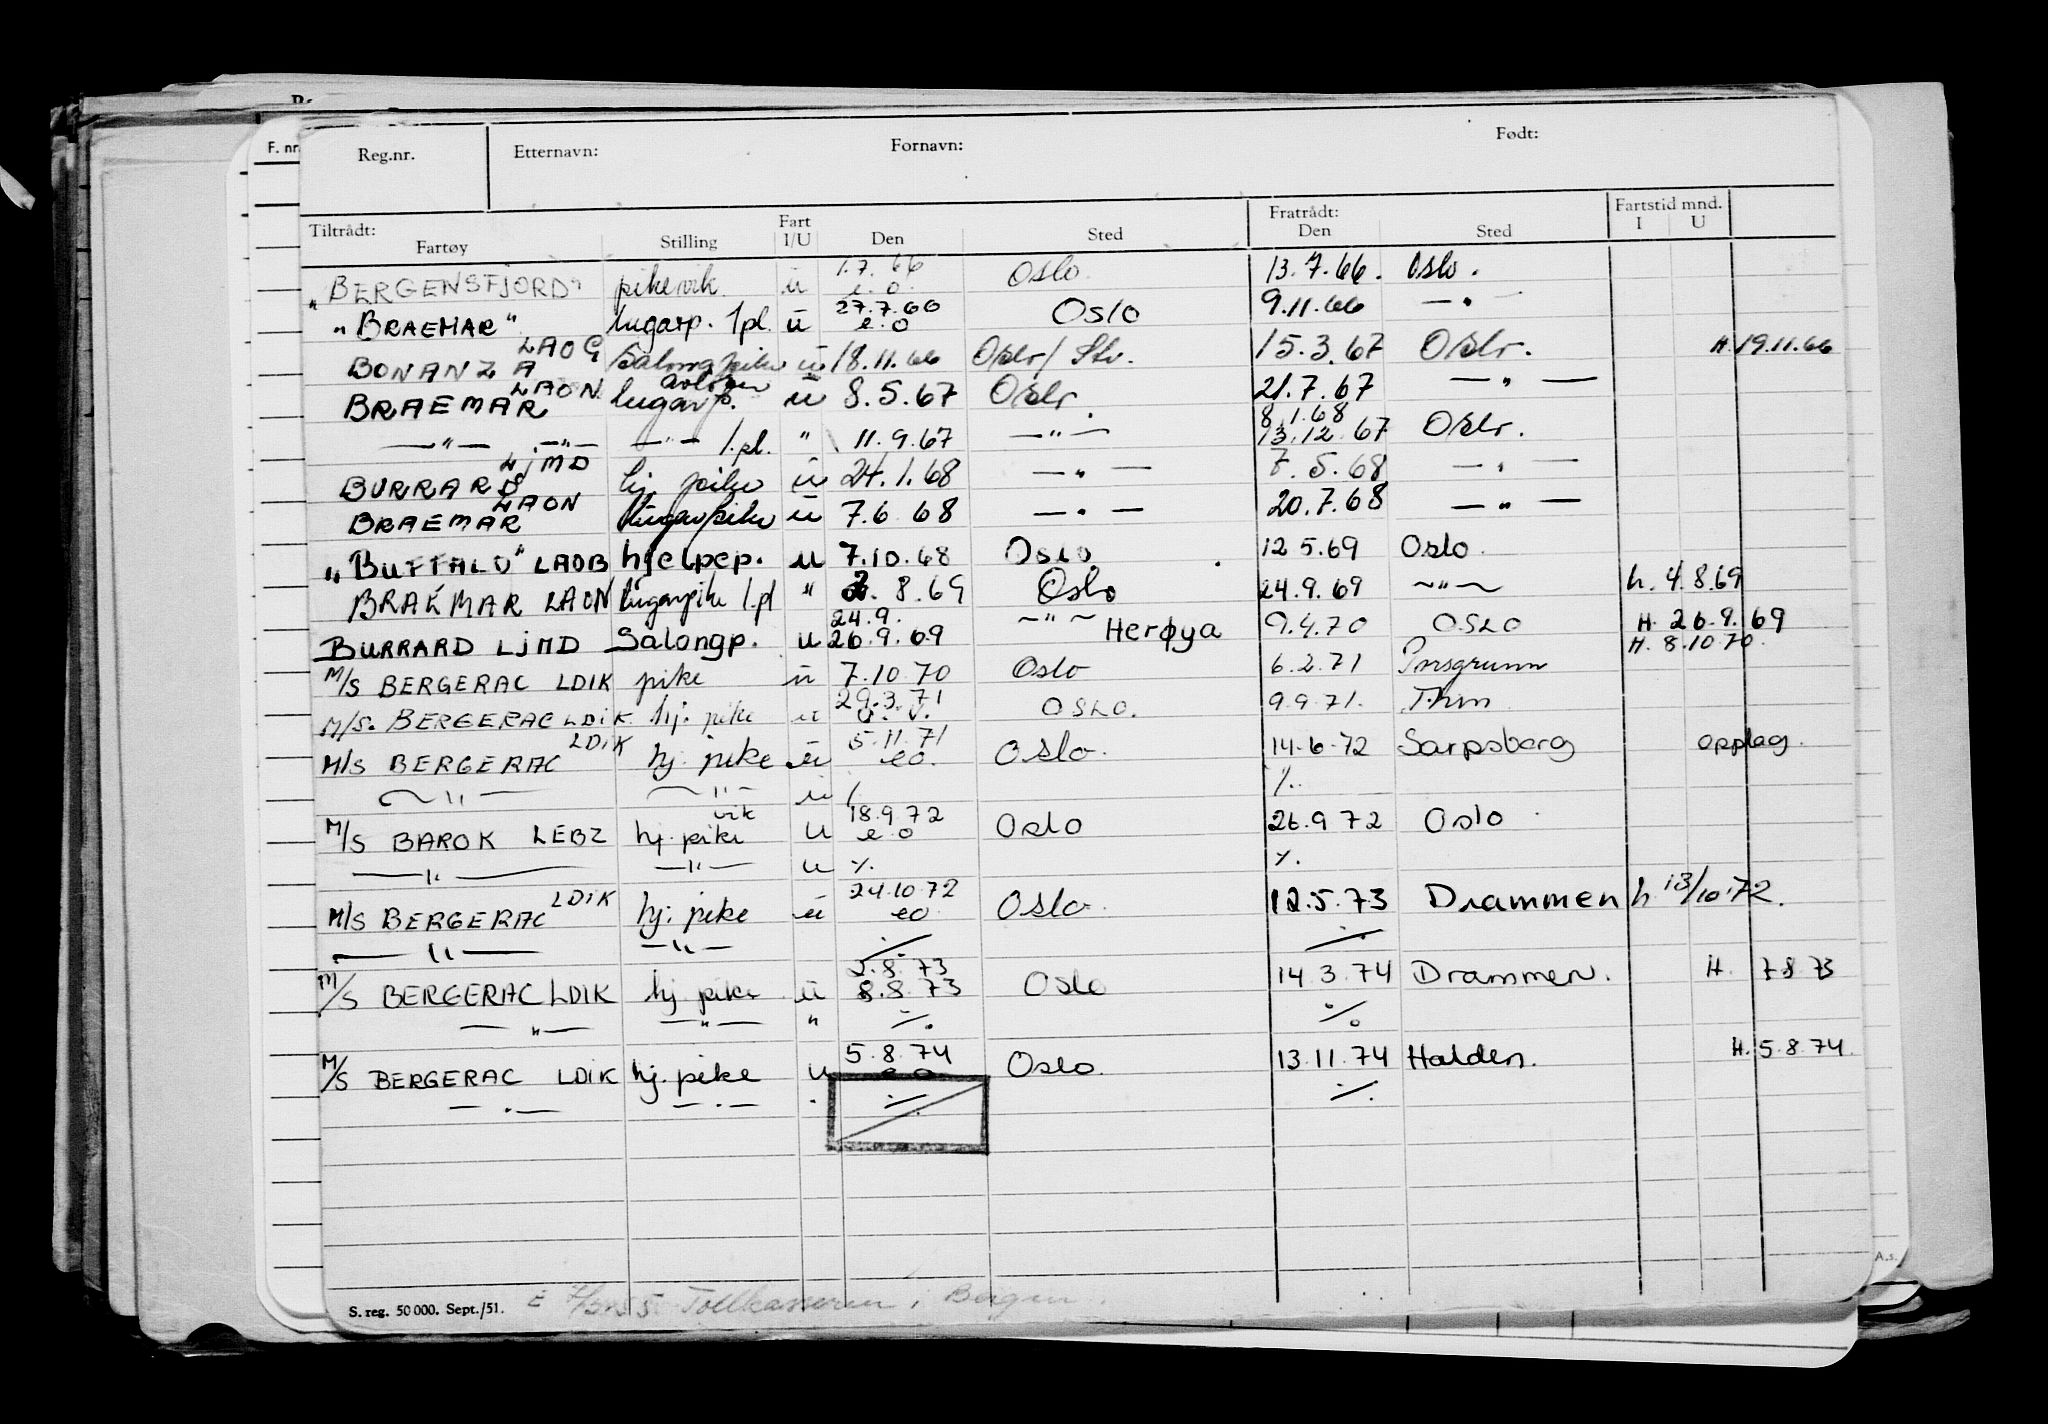 F. nr.
Reg.nr. Etternavn: Fornavn: Født:
Tiltrådt: Fart Fratrådt: Fartstid mnd.
Fartøy Stilling I/U Den Sted Den Sted I U
"BERGENSFJORD" pikevik u 1.7.66 e.o. Oslo 13.7.66. Oslo.
"BRAEMAR" lugarp. 1pl. u 27.7.66 e.o Oslo 9.11.66 — " —
BONANZA LAOG Salongpike u 18.11.66 Oslo/ Stv. 15.3.67 Oslo. H. 19.11.66
BRAEMAR LAON lugarp. avløser u 8.5.67 Oslo 21.7.67 — " —
— " — — " — — " — 1.pl. " 11.9.67 — " — 8.1.68 13.12.67 Oslo.
BURRARD LJMD hj pike u 24.1.68 — " — 7.5.68 — " —
BRAEMAR LAON lugarpike u 7.6 68 — " — 20.7.68 — " —
"BUFFALO" LAOB hjelpep. u 7.10.68 Oslo 12 5.69 Oslo.
BRAEMAR LAON lugarpike 1.pl " 2. 8.69 Oslo 24.9.69 — " — h. 4.8.69
BURRARD LJMD Salongp. u 24.9. 26.9.69 — " — Herøya 9.4.70 OSLO H. 26.9.69
M/S BERGERAC LDIK pike u 7.10.70 Oslo 6.2.71 Porsgrunn H. 8.10.70.
M/S. BERGERAC LDIK hj. pike u 29.3.71 OSLO. 9.9.71. Thm
M/S BERGERAC LDIK hj. pike u 5.11.71 eo. Oslo. 14.6.72 Sarpsborg opplag.
— " — — " — u ·/. ·/.
M/S BAROK LEBZ hj. pike vik u 18.9.72 e o Oslo 26.9 72 Oslo
— " — — " — u ·/. ·/.
M/S BERGERAC LDIK hj. pike u 24.10.72 eo. Oslo. 12.5.73 Drammen h. 13/10.72.
— " — — " — ·/. ·/.
M/S BERGERAC LDIK hj. pike u 2.8.73 8.8.73 Oslo 14.3.74 Drammen. H. 7 8 73
— " — — " — " ·/. ·/.
M/S BERGERAC LDIK hj. pike u 5.8.74 e o Oslo. 13.11.74 Halden. H. 5.8.74.
— " — — " — " ·/. ·/.
S. reg. 50 000. Sept./51. Tollkasseren i Bergen.
A.s.